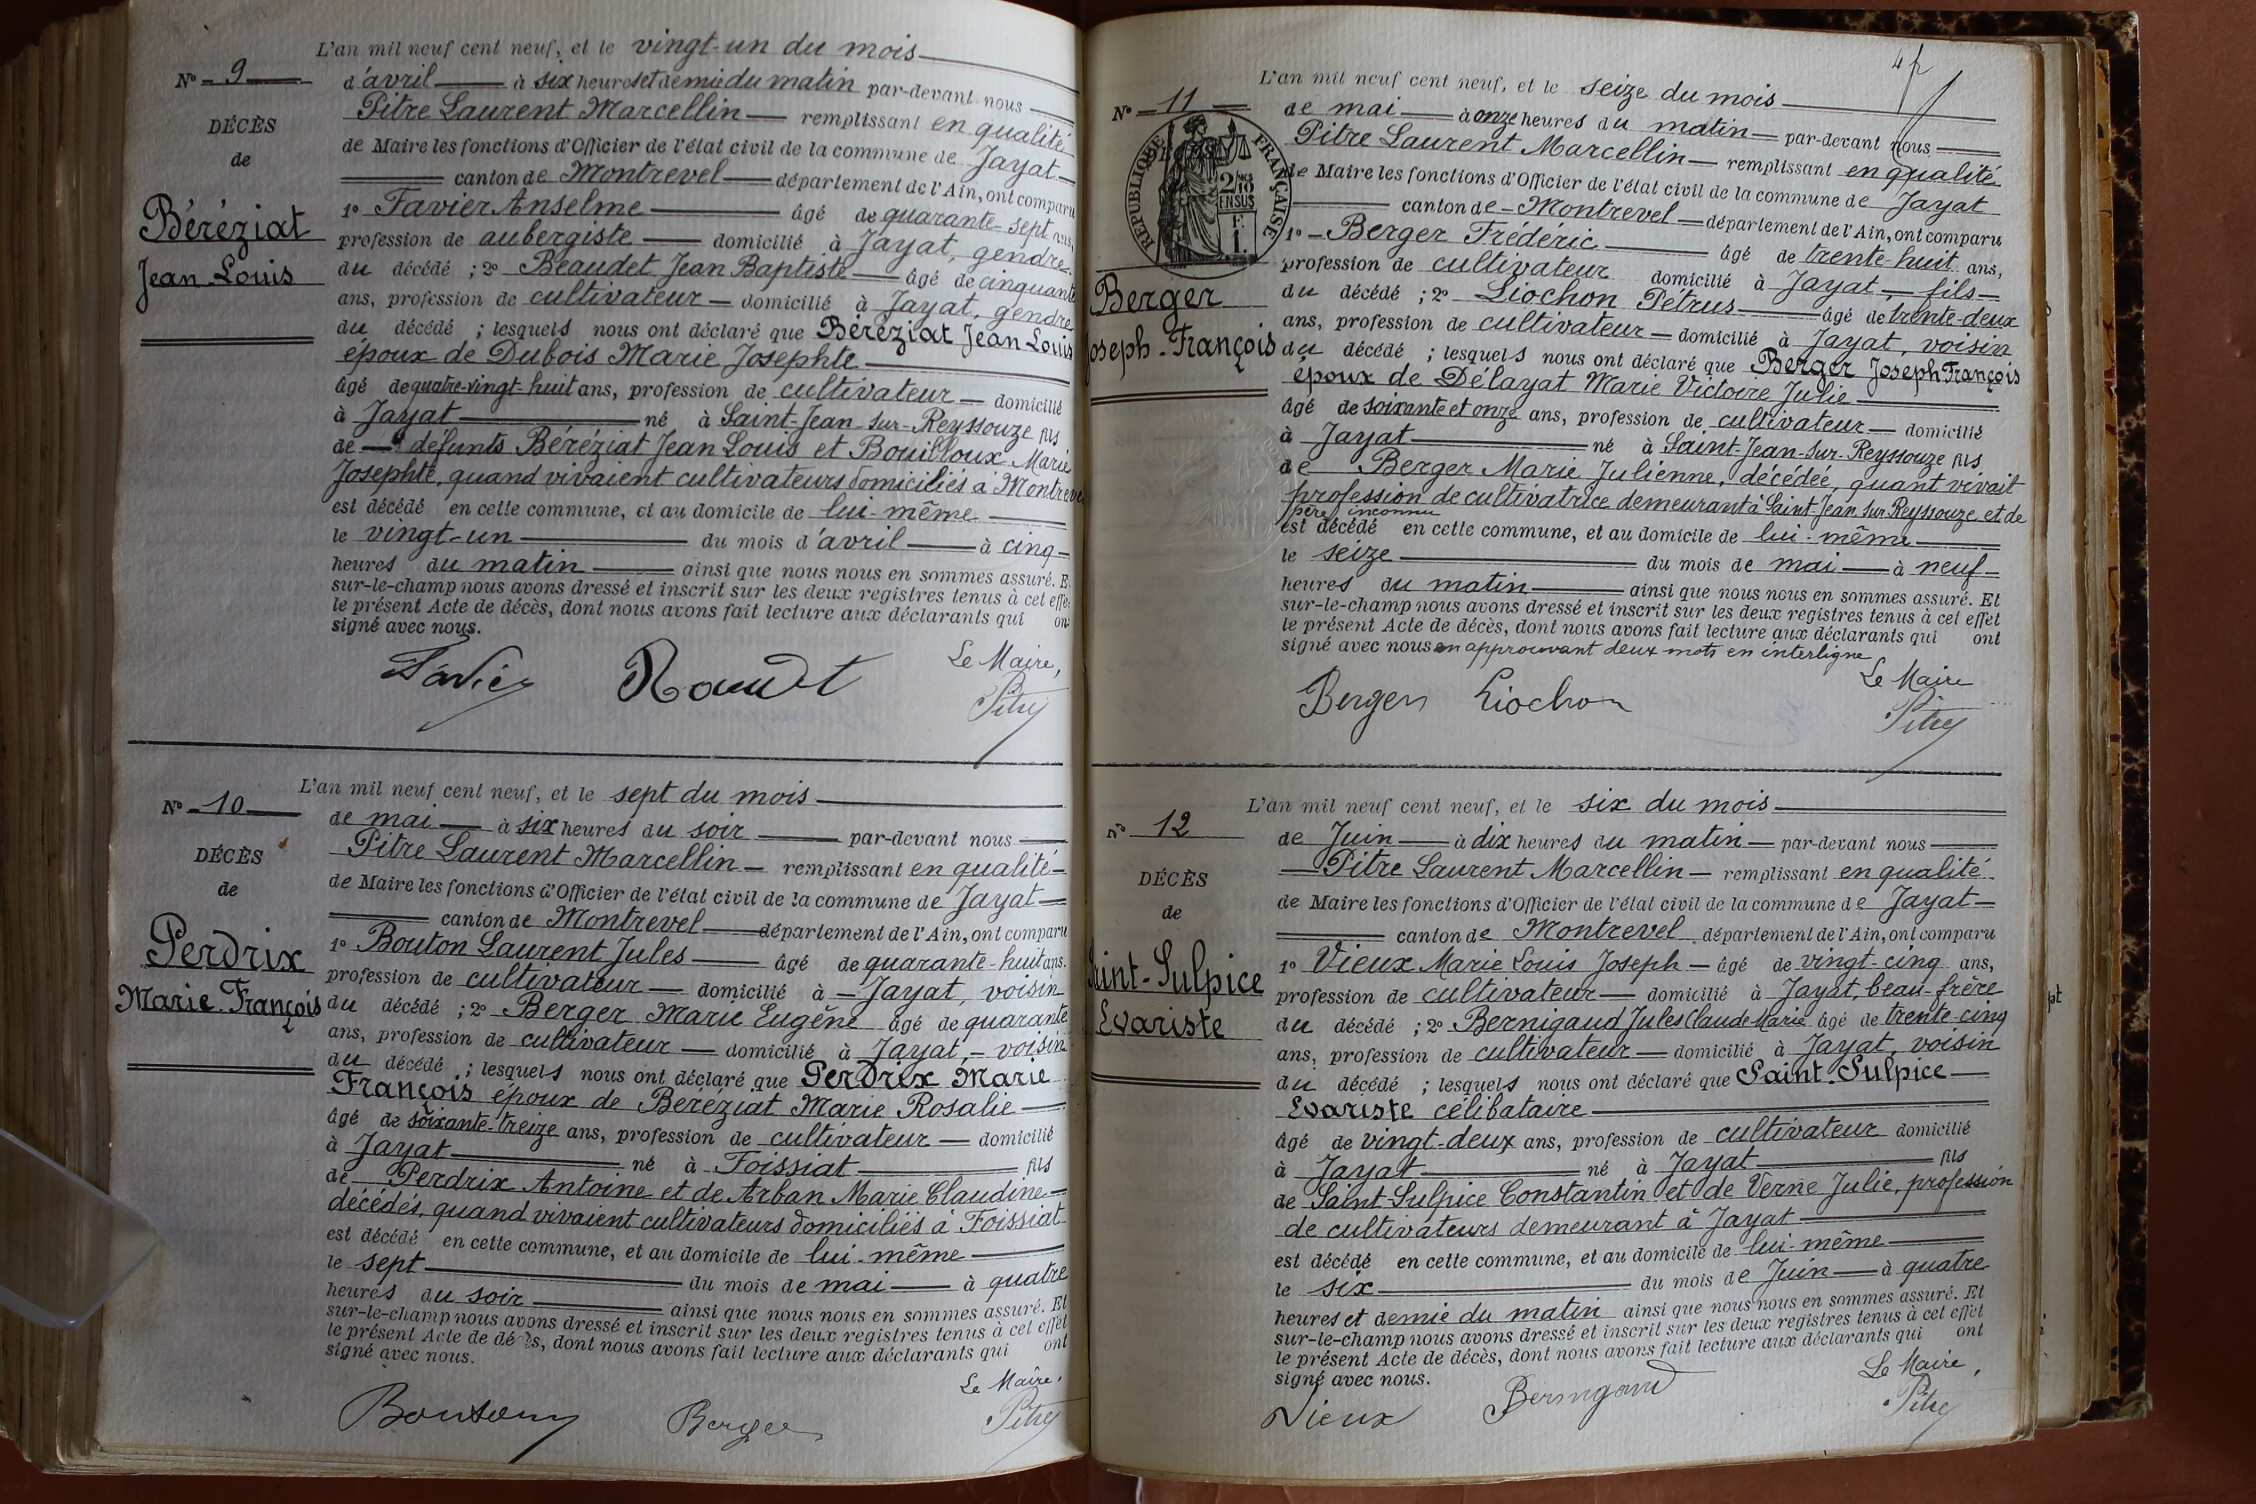 L'an mil neuf cent neuf, et le vingt-un du mois
N° 9
d'avril à six heures et demie du matin par-devant nous
Pitre Laurent Marcellin remplissant en qualité
DÉCÈS
de Maire les fonctions d'Officier de l'état civil de la commune de Jayat
de
canton de Montrevel département de l'Ain, ont comparu
1° Favier Anselme âgé de quarante-sept ans,
Béréziat
profession de aubergiste domicilié à Jayat, gendre
Jean Louis
du décédé ; 2° Beaudet Jean Baptiste âgé de cinquante
ans, profession de cultivateur domicilié à Jayat, gendre
du décédé ; lesquels nous ont déclaré que Béréziat Jean Louis
époux de Dubois Marie Josephte
âgé de quatre-vingt-huit ans, profession de cultivateur domicilié
à Jayat né à Saint-Jean-sur-Reyssouze fils
de défunts Béréziat Jean Louis et Bouilloux Marie
Josephte, quand vivaient cultivateurs domiciliés à Montrevel
est décédé en cette commune, et au domicile de lui-même
le vingt-un du mois d'avril à cinq
heures du matin ainsi que nous nous en sommes assuré. Et
sur-le-champ nous avons dressé et inscrit sur les deux registres tenus à cet effet
le présent Acte de décès, dont nous avons fait lecture aux déclarants qui ont
signé avec nous.
Le Maire,
Favier
Pitre
L'an mil neuf cent neuf, et le sept du mois
N° 10
de mai à six heures du soir par-devant nous
Pitre Laurent Marcellin remplissant en qualité
DÉCÈS
de Maire les fonctions d'Officier de l'état civil de la commune de Jayat
de
canton de Montrevel département de l'Ain, ont comparu
1° Bouton Laurent Jules âgé de quarante-huit ans.
Perdrix
profession de cultivateur domicilié à Jayat, voisin
Marie-François
du décédé ; 2° Berger Marie Eugène âgé de quarante
ans, profession de cultivateur domicilié à Jayat, voisin
du décédé ; lesquels nous ont déclaré que Perdrix Marie
François époux de Béréziat Marie Rosalie
âgé de soixante-treize ans, profession de cultivateur domicilié
à Jayat né à Foissiat fils
de Perdrix Antoine et de Arban Marie Claudine
décédés, quand vivaient cultivateurs domiciliés à Foissiat
est décédé en cette commune, et au domicile de lui-même
le sept du mois de mai à quatre
heures du soir ainsi que nous nous en sommes assuré. Et
sur-le-champ nous avons dressé et inscrit sur les deux registres tenus à cet effet
le présent Acte de décès, dont nous avons fait lecture aux déclarants qui ont
signé avec nous.
Le Maire,
Bouton Berger Pitre
L'an mil neuf cent neuf, et le seize du mois
N° 11
de mai à onze heures du matin par-devant nous
Pitre Laurent Marcellin remplissant en qualité
RÉPUBLIQUE FRANÇAISE
2/10 EN SUS
de Maire les fonctions d'Officier de l'état civil de la commune de Jayat
canton de Montrevel département de l'Ain, ont comparu
1° Berger Frédéric âgé de trente-huit ans,
profession de cultivateur domicilié à Jayat, fils
Berger
du décédé ; 2° Liochon Pétrus âgé de trente-deux
ans, profession de cultivateur domicilié à Jayat, voisin
Joseph-François
du décédé ; lesquels nous ont déclaré que Berger Joseph François
époux de Délayat Marie Victoire Julie
âgé de soixante et onze ans, profession de cultivateur domicilié
à Jayat né à Saint-Jean-sur-Reyssouze fils
de Berger Marie Julienne, décédée, quant vivait
profession de cultivatrice demeurant à Saint Jean sur Reyssouze et de
père inconnu
est décédé en cette commune, et au domicile de lui-même
le seize du mois de mai à neuf
heures du matin ainsi que nous nous en sommes assuré. Et
sur-le-champ nous avons dressé et inscrit sur les deux registres tenus à cet effet
le présent Acte de décès, dont nous avons fait lecture aux déclarants qui ont
signé avec nous en approuvant deux mots en interligne
Le Maire
Berger Liochon Pitre
L'an mil neuf cent neuf, et le six du mois
N° 12
de Juin à dix heures du matin par-devant nous
Pitre Laurent Marcellin remplissant en qualité
DÉCÈS
de Maire les fonctions d'Officier de l'état civil de la commune de Jayat
de
canton de Montrevel département de l'Ain, ont comparu
1° Vieux Marie Louis Joseph âgé de vingt-cinq ans,
Saint-Sulpice
profession de cultivateur domicilié à Jayat, beau-frère
Evariste
du décédé ; 2° Bernigaud Jules Claude Marie âgé de trente-cinq
ans, profession de cultivateur domicilié à Jayat, voisin
du décédé ; lesquels nous ont déclaré que Saint-Sulpice
Evariste célibataire
âgé de vingt-deux ans, profession de cultivateur domicilié
à Jayat né à Jayat fils
de Saint-Sulpice Constantin et de Verne Julie, profession
de cultivateurs demeurant à Jayat
est décédé en cette commune, et au domicile de lui-même
le six du mois de Juin à quatre
heures et demie du matin ainsi que nous nous en sommes assuré. Et
sur-le-champ nous avons dressé et inscrit sur les deux registres tenus à cet effet
le présent Acte de décès, dont nous avons fait lecture aux déclarants qui ont
signé avec nous.
Le Maire,
Vieux Bernigaud Pitre